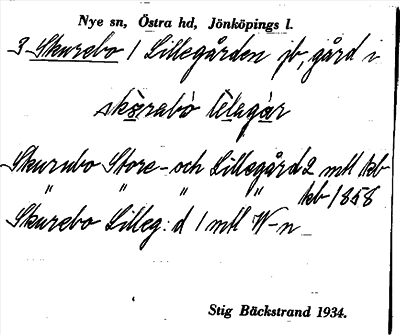 Nye sn, Östra hd, Jönköpings l.
3 Skurebo / Lillegården jb, gård i
skørabò lìlagar
Skurubo Store- och Lillegård 2 mtl kb
" " " " kb 1858
Skurebo Lilleg:d 1 mtl W-n
Stig Bäckstrand 1934.